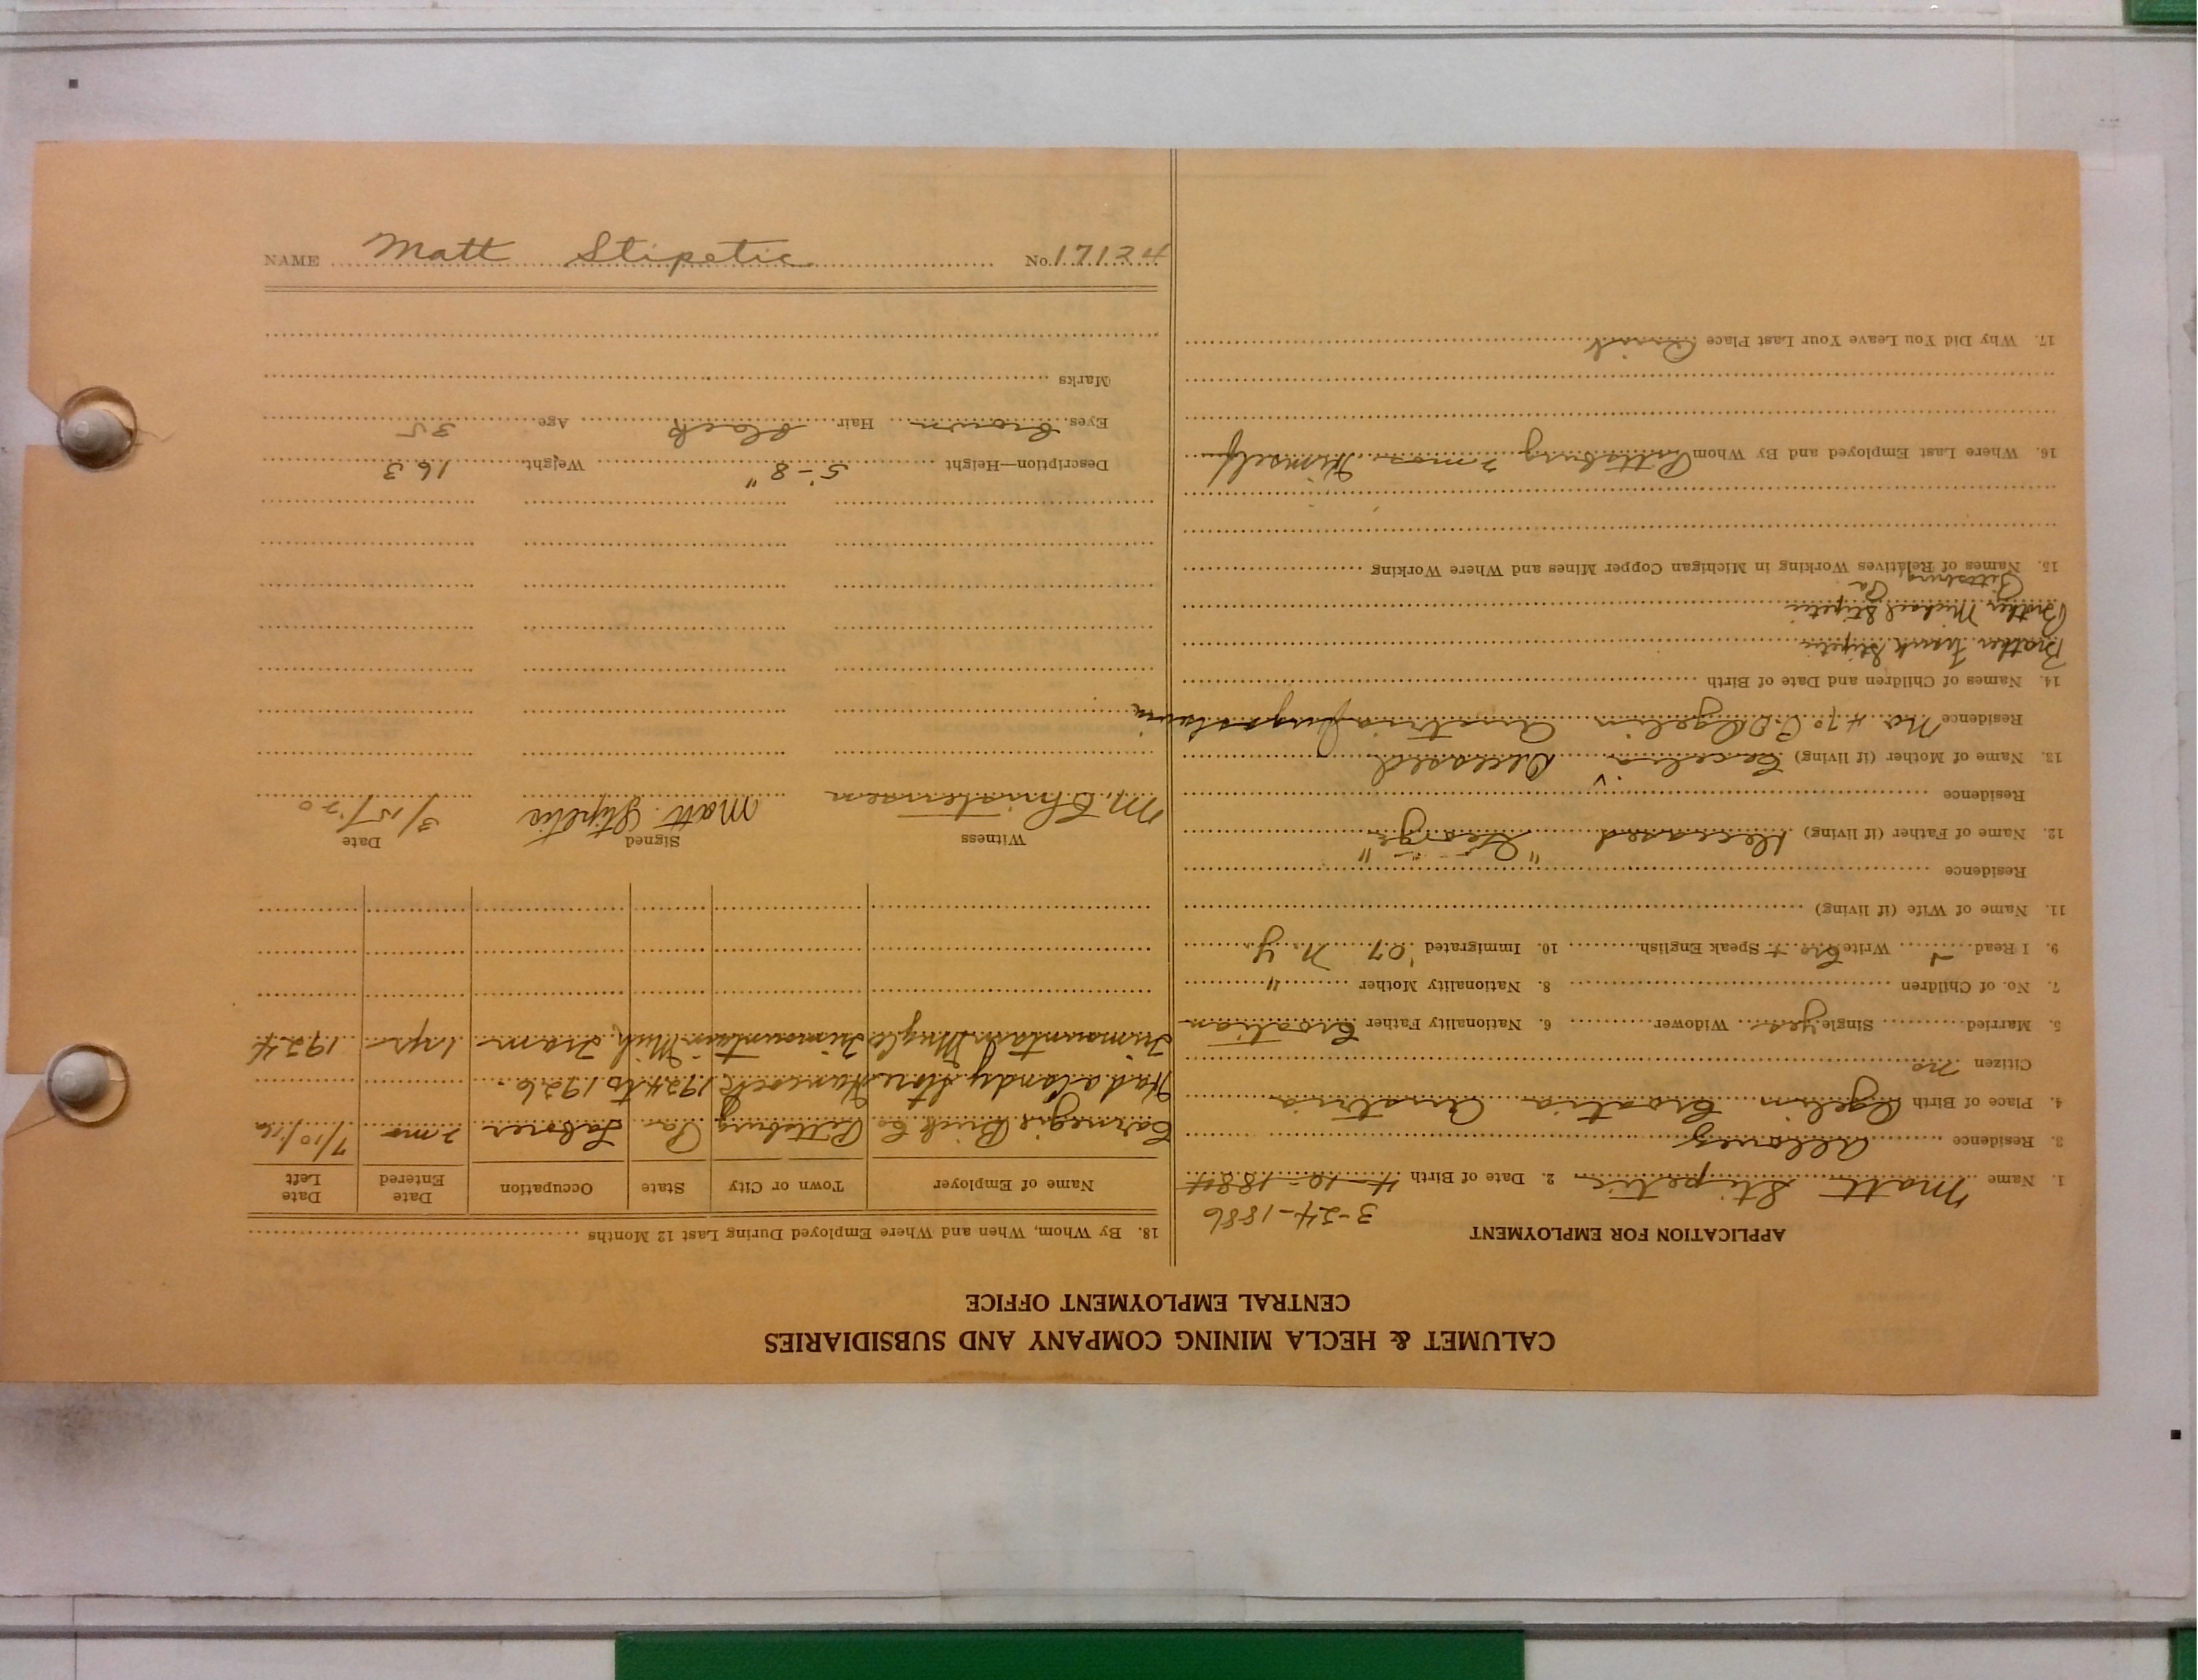 CALUMET & HECLA MINING COMPANY AND SUBSIDIARIES
CENTRAL EMPLOYMENT OFFICE
APPLICATION FOR EMPLOYMENT
3-24-1886
1. Name Matt Stipetic 2. Date of Birth 4-10-1884
3. Residence Allouez
4. Place of Birth Ogelin Croatia Austria
Citizen no
5. Married Single yes Widower 6. Nationality Father Croatian
7. No. of Children 8. Nationality Mother "
9. I Read Write Cro + Speak English 10. Immigrated '07 N.Y.
11. Name of Wife (if living)
Residence
12. Name of Father (if living) Deceased "George"
Residence
13. Name of Mother (if living) Cecelia Deceased
Residence No 470 P.O. Ogelin Austria Jugoslavia
14. Names of Children and Date of Birth
Brother Frank Stipetic
Brother Michael Stipetic
Pittsburg Pa
15. Names of Relatives Working in Michigan Copper Mines and Where Working
16. Where Last Employed and By Whom Pittsburg 2 mos. Himself
17. Why Did You Leave Your Last Place Quit
18. By Whom, When and Where Employed During Last 12 Months
Name of Employer Town or City State Occupation Date Entered Date Left
Carnegie Brick Co Pittsburg Pa Laborer 2 mo 7/10/26
Had a Candy Store Hancock 1924 to 1926.
Trimountain Mng Co Trimountain Mich Tram 1 yr 1924
Witness Signed Date
M. Christensen Matt Stipetic 3/15/20
Description—Height 5'-8" Weight 163
Eyes brown Hair black Age 35
Marks
NAME Matt Stipetic No. 17124